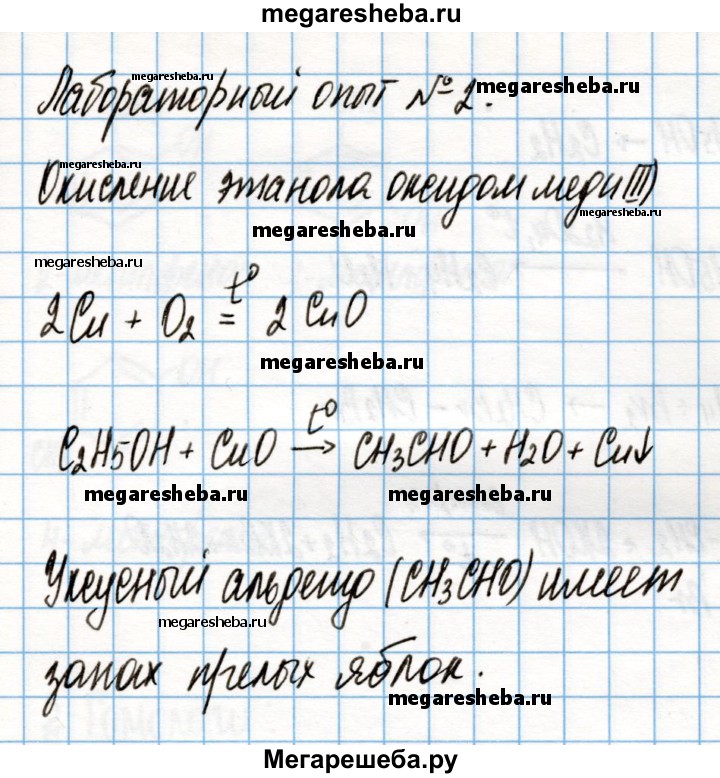 megaresheba.ru
megaresheba.ru
Лабораторный опыт № 2.
megaresheba.ru
megaresheba.ru
Окисление этанола оксидом меди(II)
megaresheba.ru
megaresheba.ru
2Cu + O2 =t° 2CuO
megaresheba.ru
C2H5OH + CuO t°→ CH3CHO + H2O + Cu↓
megaresheba.ru megaresheba.ru
Уксусный альдегид (CH3CHO) имеет
megaresheba.ru
запах прелых яблок.
megaresheba.ru
Мегарешеба.ру